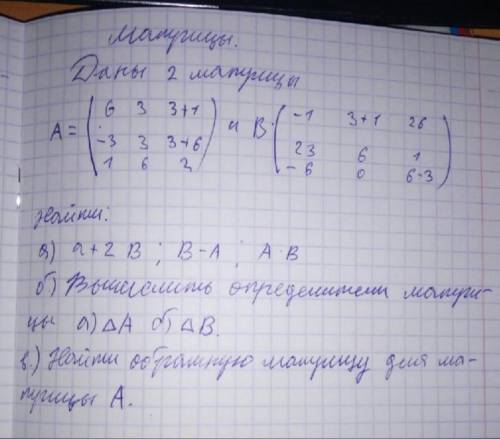 Матрицы.
Даны 2 матрицы
A = ( 6 3 3+1
-3 3 3+6
1 6 2 ) и B ( -1 3+1 26
23 6 1
-6 0 6-3 )
Найти:
а) a + 2 B ; B - A ; A · B
б) Вычислить определители матри-
цы а) ΔA б) ΔB.
в.) Найти обратную матрицу для ма-
трицы A.